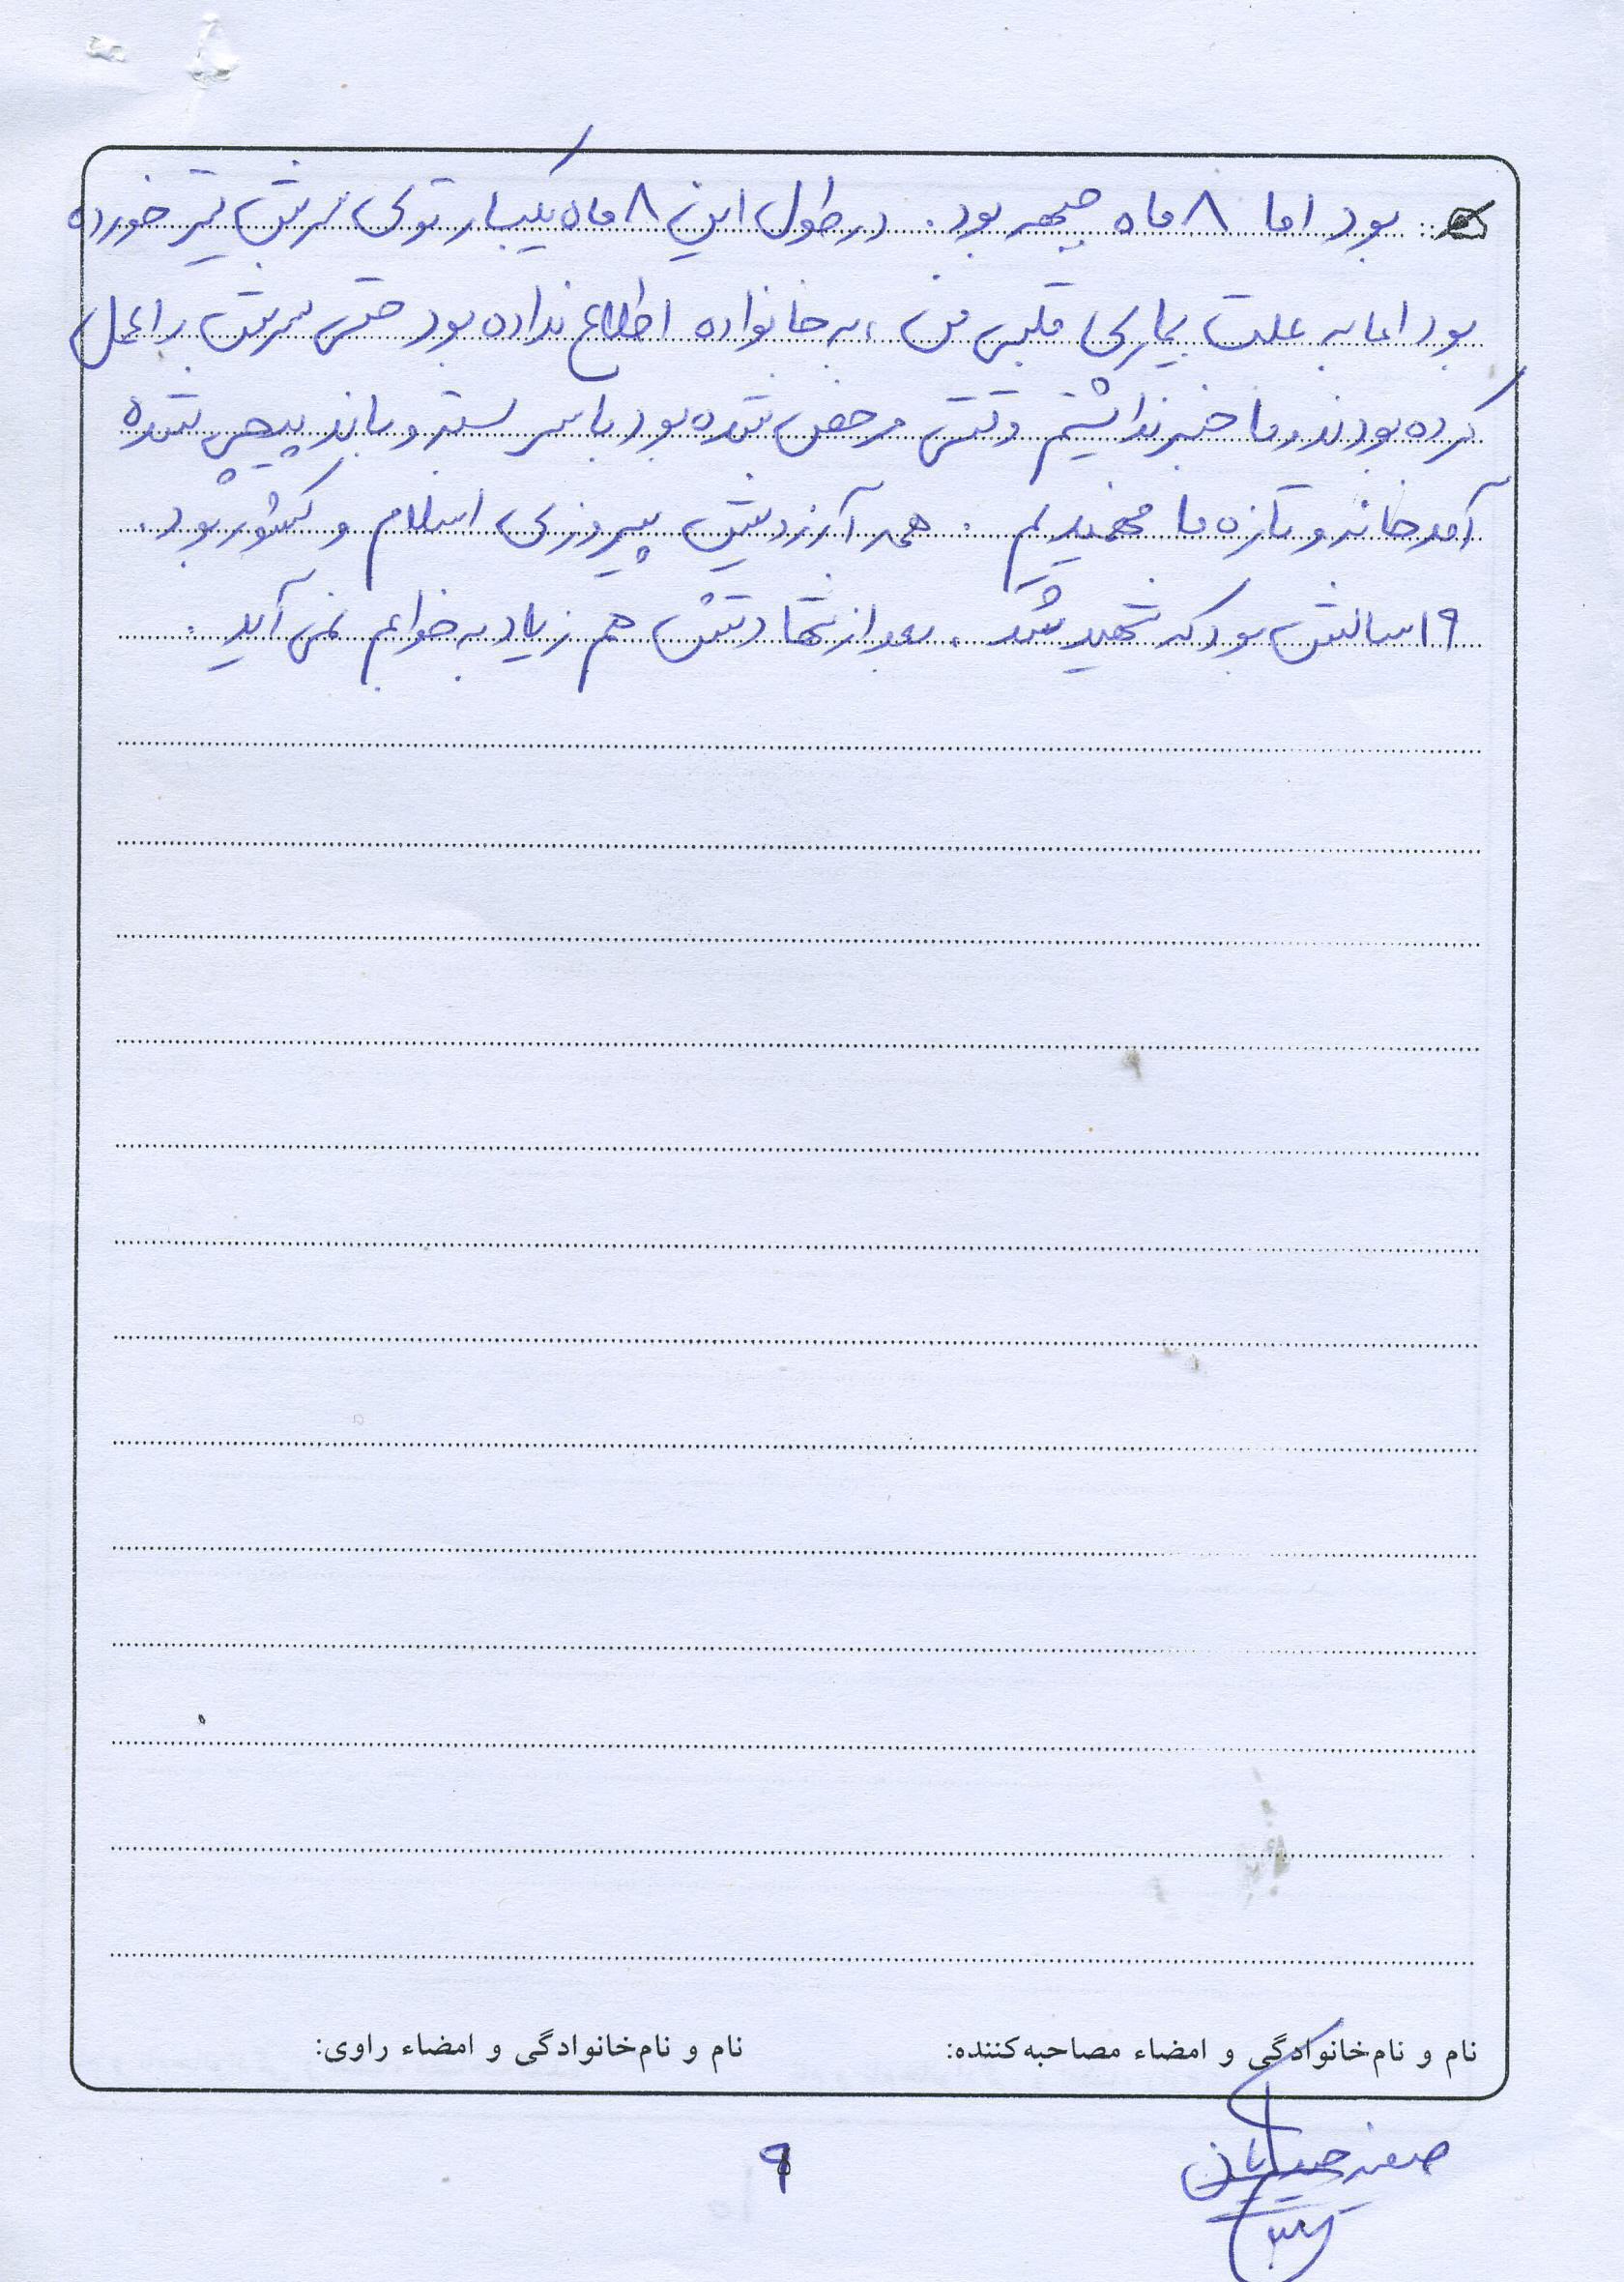 بود اما ۸ ماه جبهه بود. در طول این ۸ ماه یکبار توی سرش تیر خورده
بود اما به علت بیماری قلبی من ، به خانواده اطلاع نداده بود حتی سرش را عمل
کرده بودند و ما خبر نداشتیم وقتی مرخص شده بود با سر بسته و باند پیچی شده
آمد خانه و تازه ما فهمیدیم . همه آرزویش پیروزی اسلام و کشور بود.
۱۹ سالش بود که شهید شد . بعد از شهادتش هم زیاد به خوابم نمی آید .
نام و نام‌خانوادگی و امضاء مصاحبه‌کننده: نام و نام‌خانوادگی و امضاء راوی:
۹